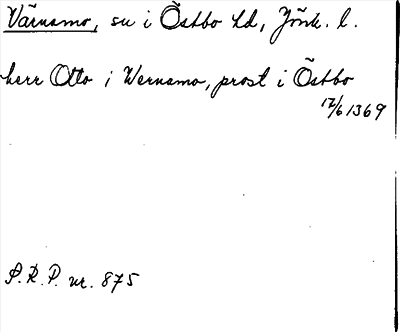 Värnamo, sn i Östbo hd, Jönk. l.
herr Otto i Wernamo, prost i Östbo
12/6 1369
S.R.P. nr. 875